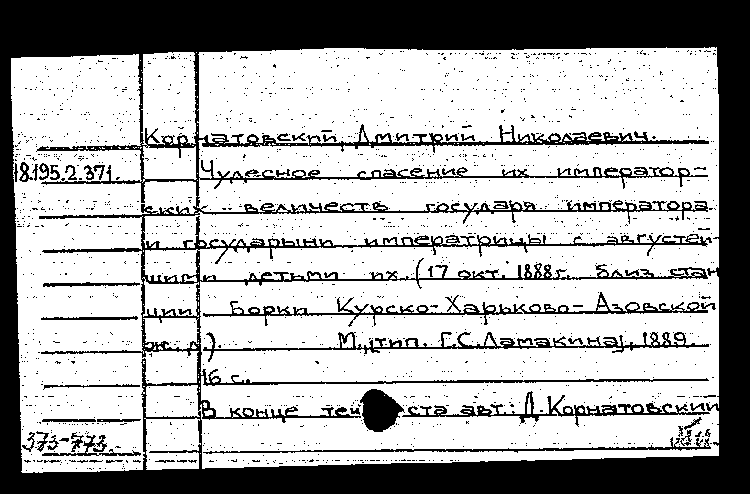 Корнатовский, Дмитрий Николаевич.
18.195.2.371. Чудесное спасение их император-
ских величеств государя императора
и государыни императрицы с августей-
шими детьми их (17 окт. 1888 г. близ стан
ции Борки Курско-Харьково-Азовской
ж. д.) М., [тип. Г.С. Ламакина], 1889.
16 с.
В конце текста авт.: Д. Корнатовский
373-773.